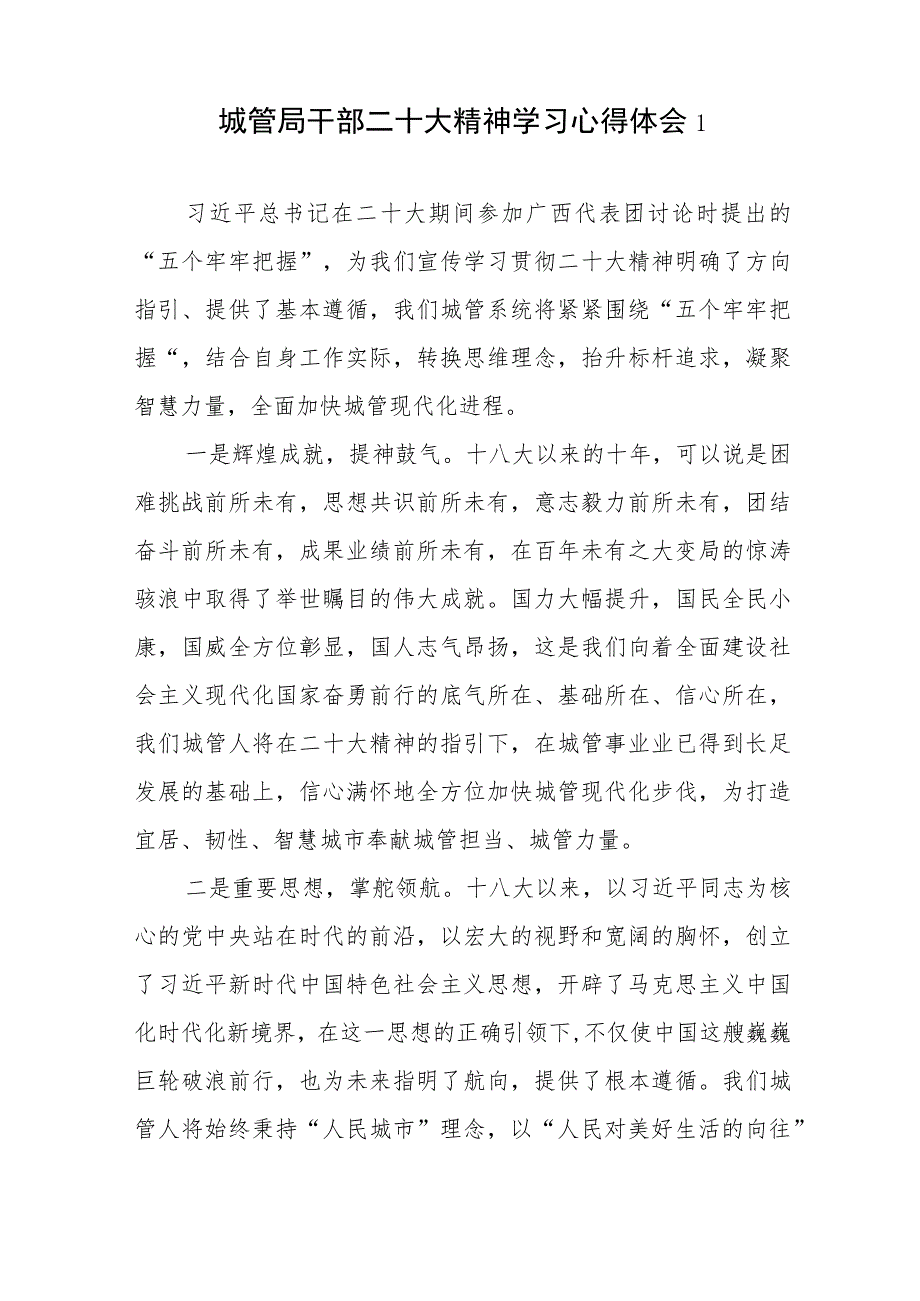 城管局干部二十大精神学习心得体会1
习近平总书记在二十大期间参加广西代表团讨论时提出的
“五个牢牢把握”，为我们宣传学习贯彻二十大精神明确了方向
指引、提供了基本遵循，我们城管系统将紧紧围绕“五个牢牢把
握“，结合自身工作实际，转换思维理念，抬升标杆追求，凝聚
智慧力量，全面加快城管现代化进程。
一是辉煌成就，提神鼓气。十八大以来的十年，可以说是困
难挑战前所未有，思想共识前所未有，意志毅力前所未有，团结
奋斗前所未有，成果业绩前所未有，在百年未有之大变局的惊涛
骇浪中取得了举世瞩目的伟大成就。国力大幅提升，国民全民小
康，国威全方位彰显，国人志气昂扬，这是我们向着全面建设社
会主义现代化国家奋勇前行的底气所在、基础所在、信心所在，
我们城管人将在二十大精神的指引下，在城管事业业已得到长足
发展的基础上，信心满怀地全方位加快城管现代化步伐，为打造
宜居、韧性、智慧城市奉献城管担当、城管力量。
二是重要思想，掌舵领航。十八大以来，以习近平同志为核
心的党中央站在时代的前沿，以宏大的视野和宽阔的胸怀，创立
了习近平新时代中国特色社会主义思想，开辟了马克思主义中国
化时代化新境界，在这一思想的正确引领下,不仅使中国这艘巍巍
巨轮破浪前行，也为未来指明了航向，提供了根本遵循。我们城
管人将始终秉持“人民城市”理念，以“人民对美好生活的向往”